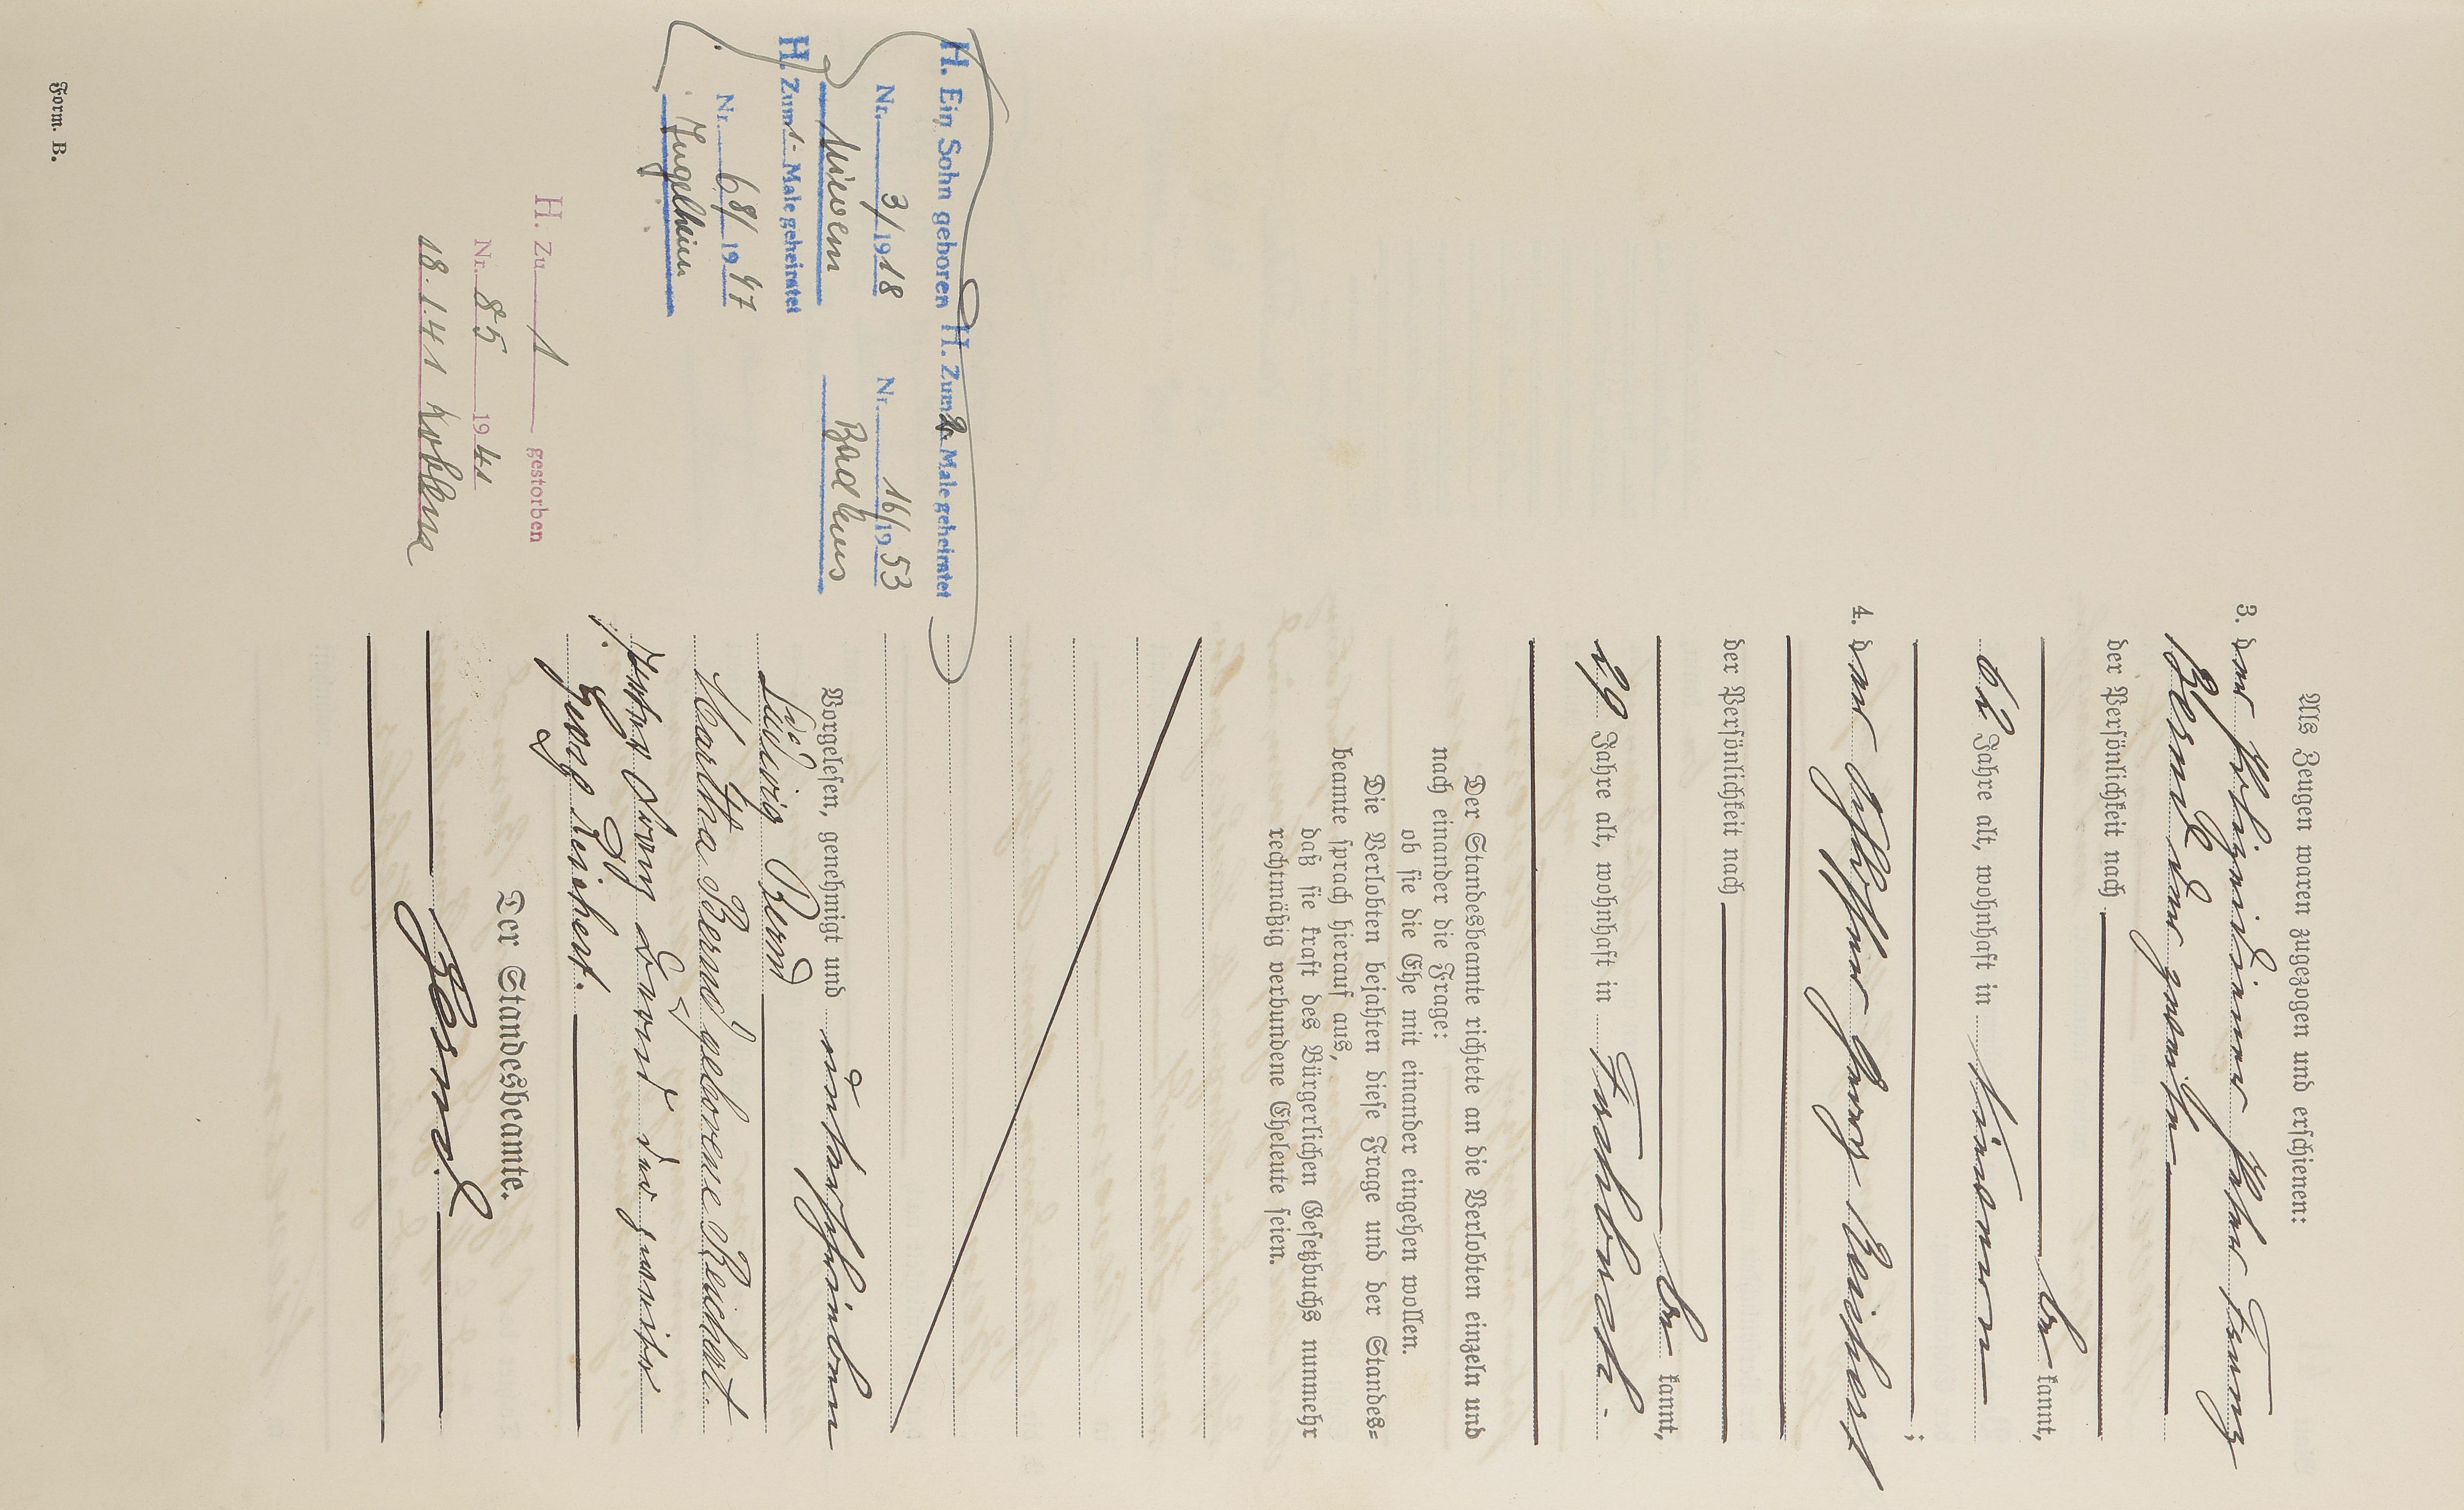 Als Zeugen waren zugezogen und erschienen:
3. der
Bernd der zweite
der Persönlichkeit nach
be kannt,
62 Jahre alt, wohnhaft in
4. der Georg Reichert
;
der Persönlichkeit nach
be kannt,
29 Jahre alt, wohnhaft in Fischbach.
Der Standesbeamte richtete an die Verlobten einzeln und
nach einander die Frage:
ob sie die Ehe mit einander eingehen wollen.
Die Verlobten bejahten diese Frage und der Standes-
beamte sprach hierauf aus,
daß sie kraft des Bürgerlichen Gesetzbuchs nunmehr
rechtmäßig verbundene Eheleute seien.
Vorgelesen, genehmigt und unterschrieben
Ludwig Bernd
Martha Bernd geborene Reichert.
Peter Franz Bernd der zweite
Georg Reichert.
Der Standesbeamte.
Bernd
H. Ein Sohn geboren
Nr. 3/1918
H. Zum 1. Male geheiratet
Nr. 68/1947
Ingelheim
H. Zum 2. Male geheiratet
Nr. 16/1953
H. Zu 1 gestorben
Nr. 85 1941
18.1.41 Koblenz
Form. B.